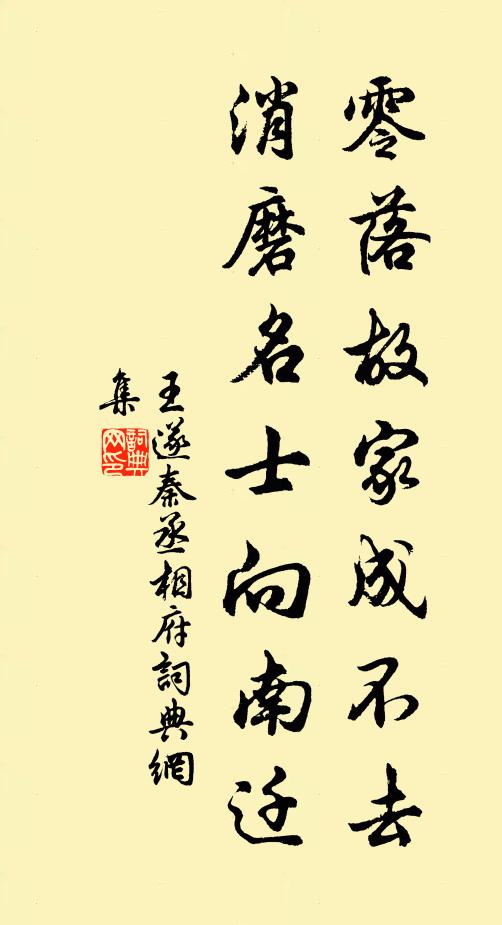 零落故家成不去
消磨名士向南迁
王遂秦丞相府詞典網
集
詞典网印